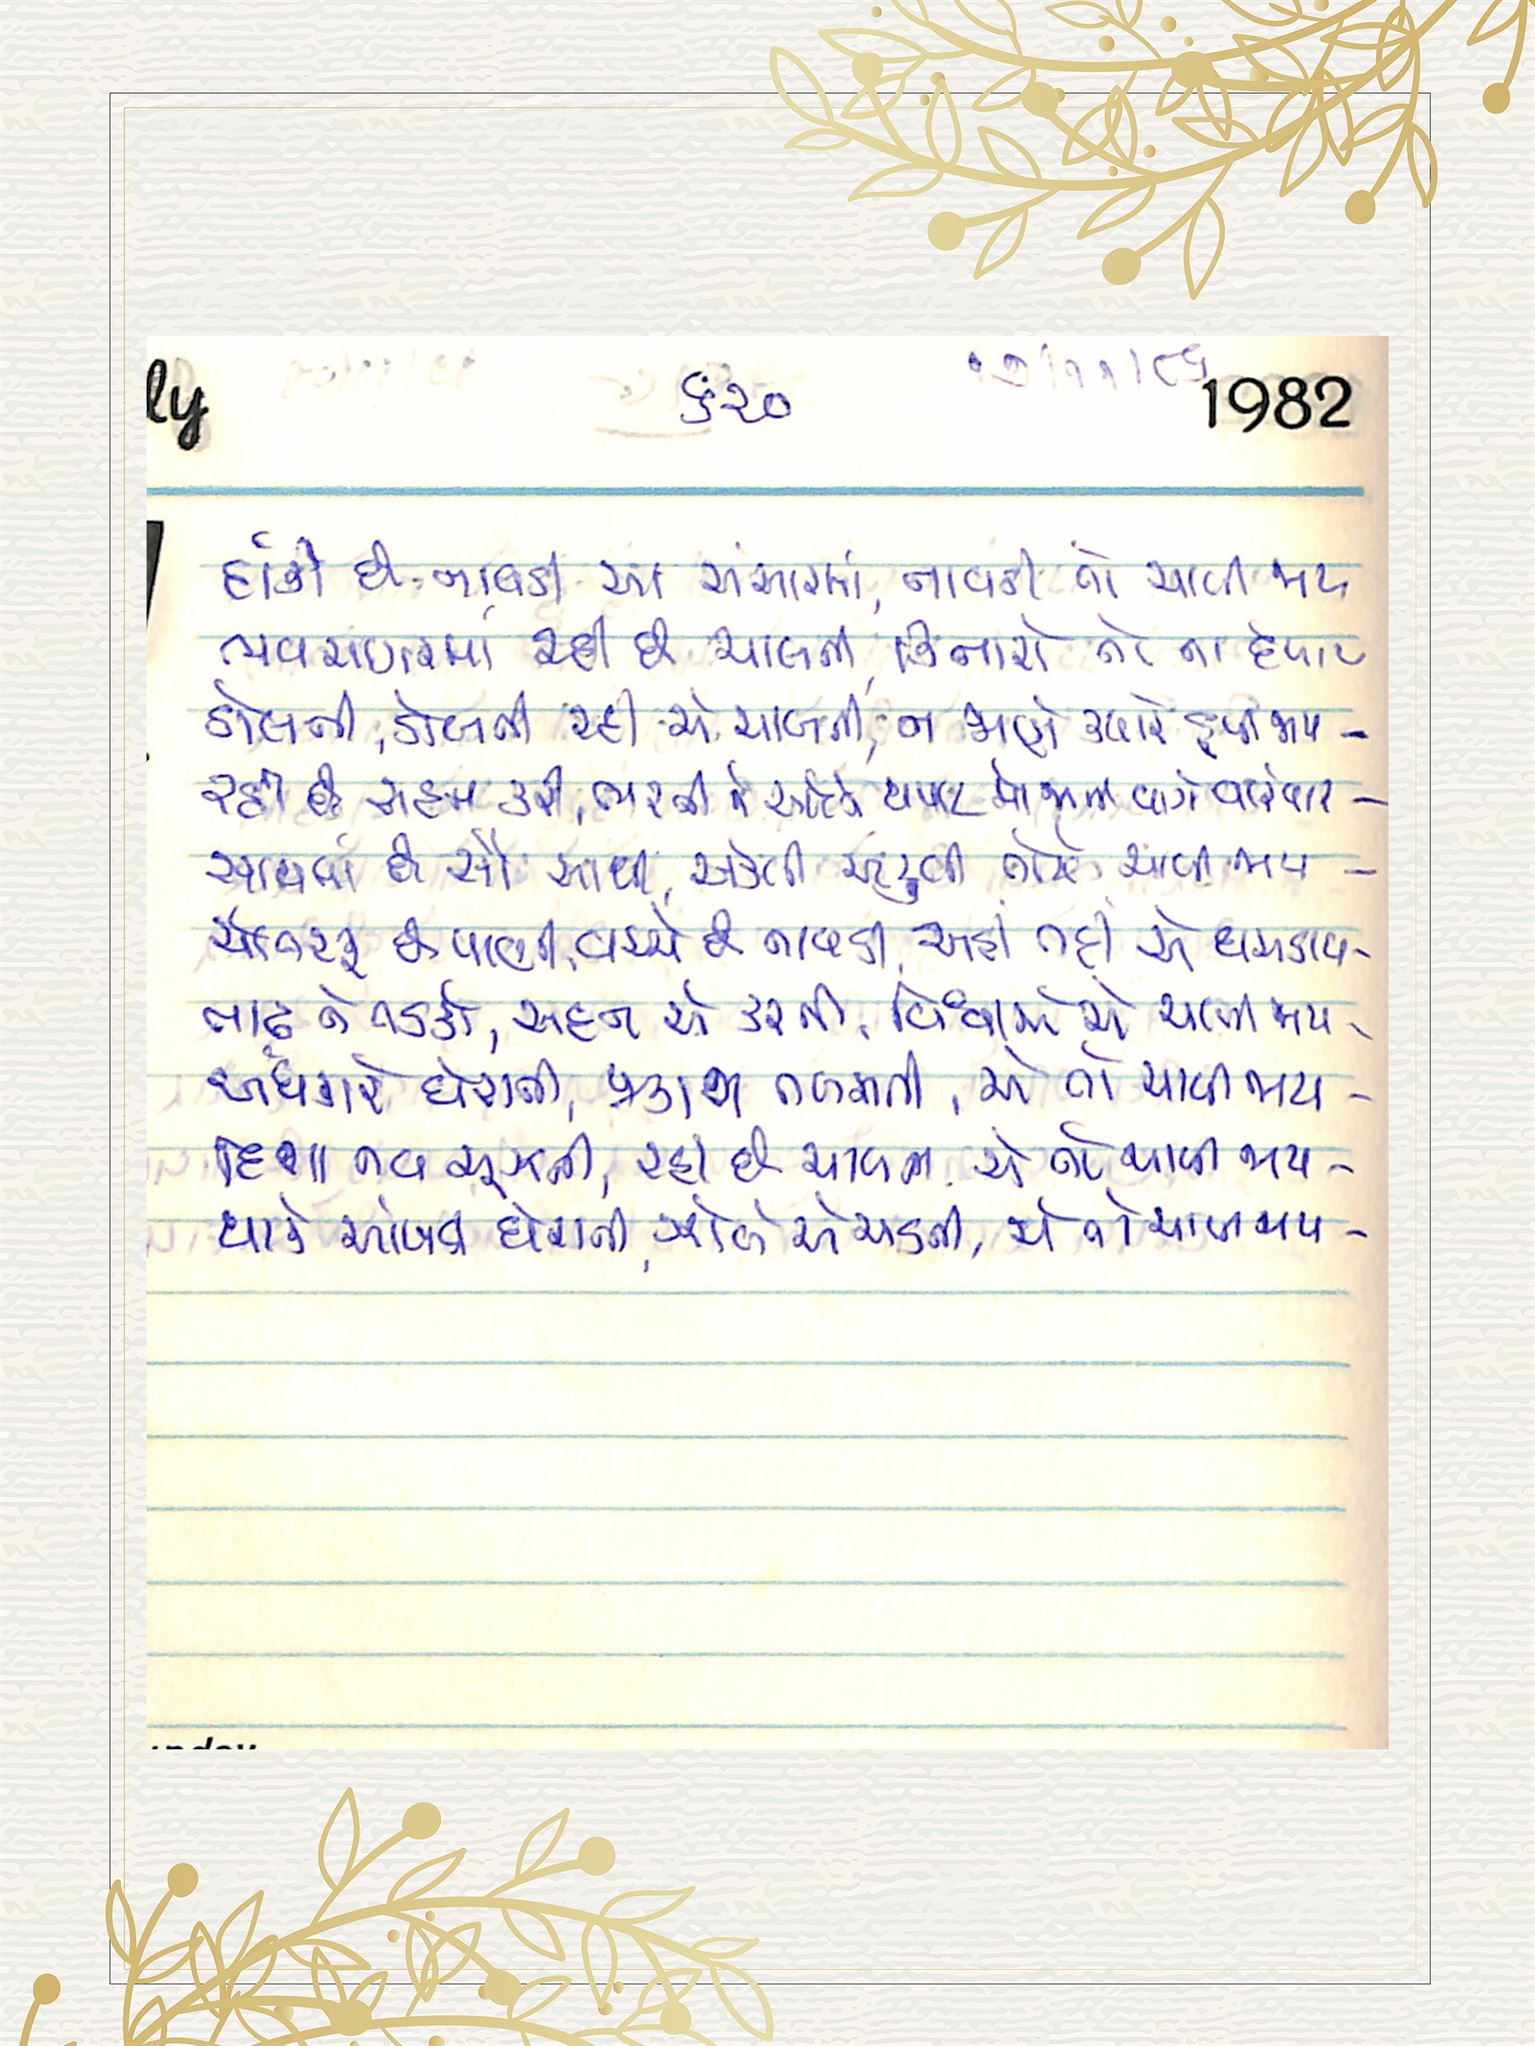 ly ૬૨૦ 1982
હાંકી છે નાવડી આ સંસારમાં, નાવડી તો ચાલી જાય
ભવસાગરમાં રહી છે ચાલતી, કિનારો તો ના દેખાય
ડોલતી, ડોલતી રહી એ ચાલતી, ન જાણે ક્યારે ડૂબી જાય -
રહી છે સહન કરી, ભરતી ને ઓટ થપાટ મોજાના વાગે વારંવાર -
સાથમાં છે સૌ સાથી, એકલી અટૂલી તોયે ચાલી જાય -
ચોતરફ છે પાણી, વચ્ચે છે નાવડી, અહીં તહીં એ ઘસડાય -
ટાઢ ને તડકો, સહન એ કરતી, વિશ્વાસે એ ચાલી જાય -
અંધકારે ઘેરાતી, પ્રકાશ તલસતી, એ તો ચાલી જાય -
દિશા નવ સૂઝતી, રહી છે ચાલતી એ તો ચાલી જાય -
થાકે આંખલડી ઘેરાતી, ઝોલે એ ચડતી, એ તો ચાલી જાય -